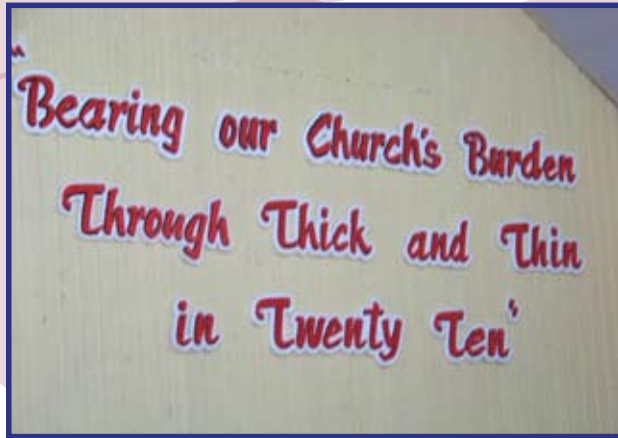 "Bearing our Church's Burden
Through Thick and Thin
in Twenty Ten"